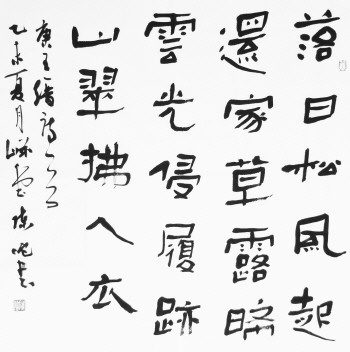 落日松風起
還家草露晞
雲光侵履跡
山翠拂人衣
唐王縉詩一首
乙未夏月書